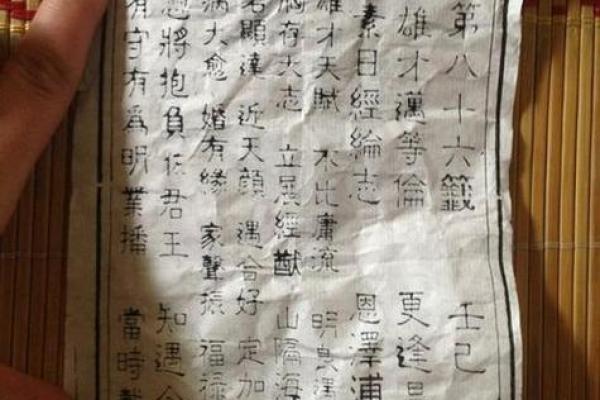 第八十六籤 壬己
雄才邁等倫 更逢
素日經綸志 恩澤
雄才天賦 不比庸流 明良
胸存大志 立展經猷 山隔海
名顯達 近天顏 遇合好 定加
病大愈 婚有緣 家聲振 福祿
將抱負佐君王 知遇
有守有爲明業播 當時